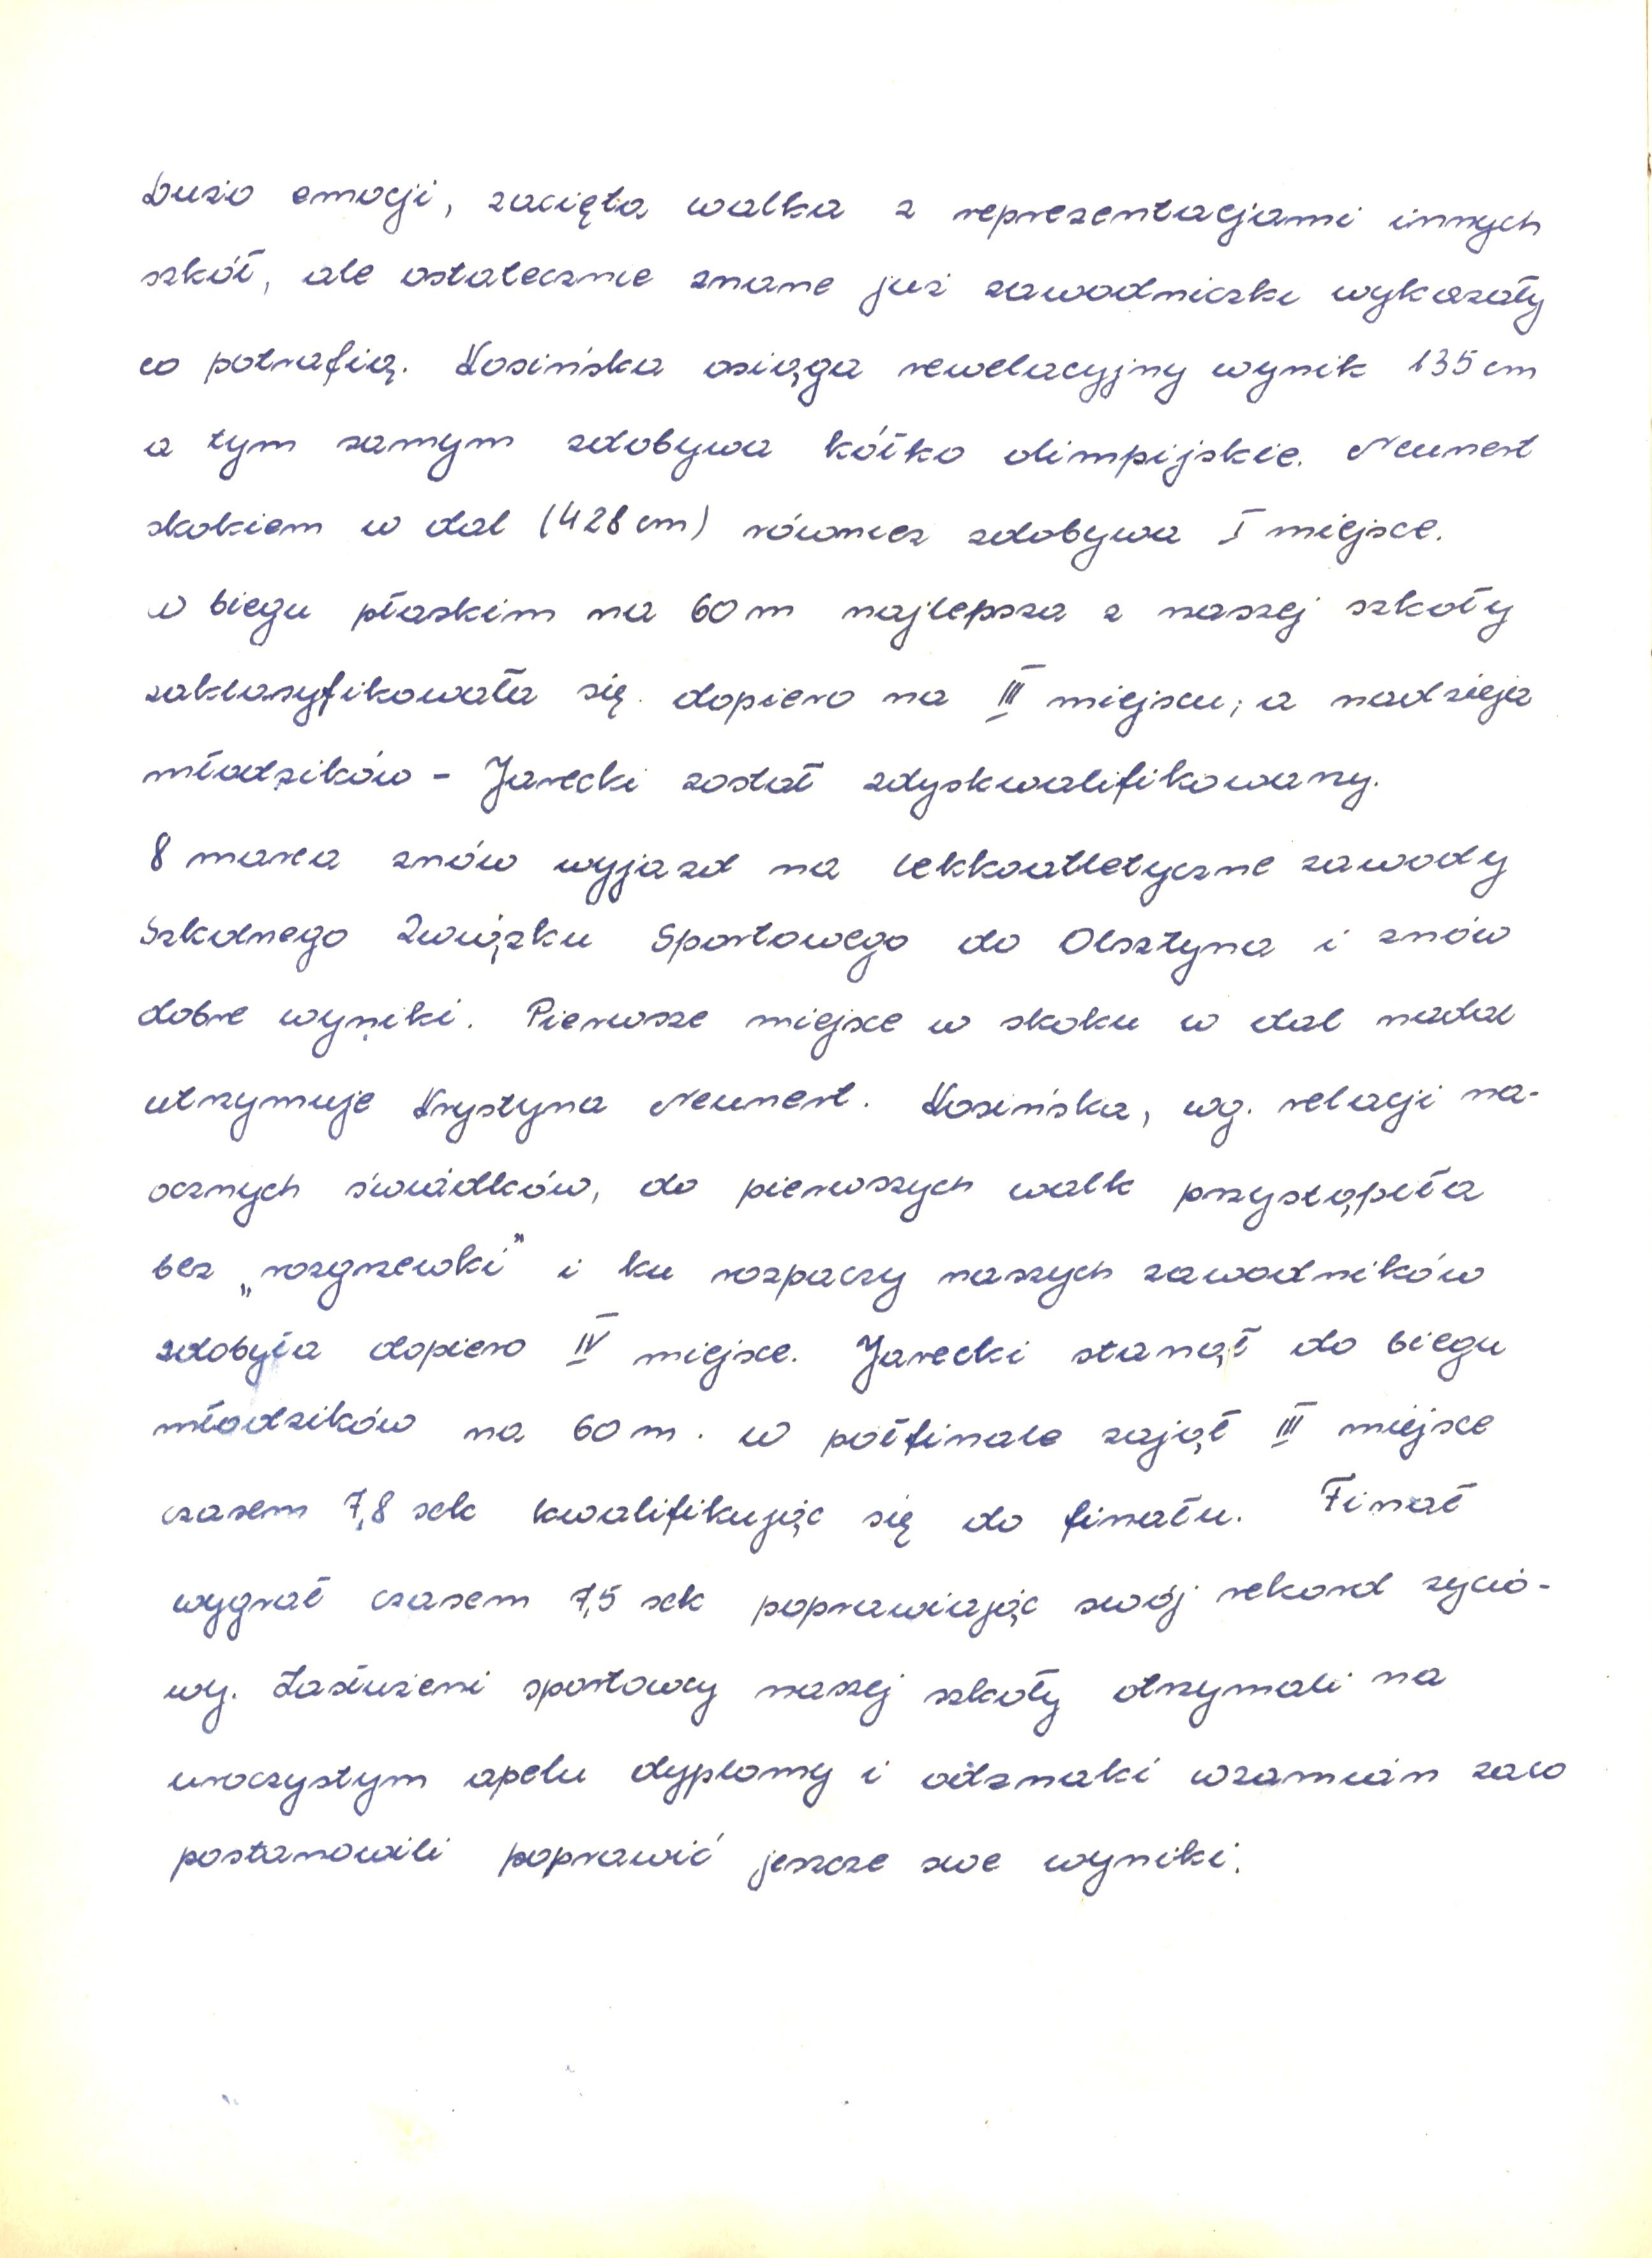 Dużo emocji, zacięta walka z reprezentacjami innych
szkół, ale ostatecznie znane już zawodniczki wykazały
co potrafią. Kosińska osiąga rewelacyjny wynik 135 cm
a tym samym zdobywa kółko olimpijskie. Neunert
skokiem w dal (428 cm) również zdobywa I miejsce.
w biegu płaskim na 60 m najlepsza z naszej szkoły
zaklasyfikowała się dopiero na III miejscu; a nadzieja
młodzików - Jarecki został zdyskwalifikowany.
8 marca znów wyjazd na lekkoatletyczne zawody
Szkolnego Związku Sportowego do Olsztyna i znów
dobre wyniki. Pierwsze miejsce w skoku w dal nadal
utrzymuje Krystyna Neunert. Kosińska, wg. relacji na-
ocznych świadków, do pierwszych walk przystąpiła
bez „rozgrzewki” i ku rozpaczy naszych zawodników
zdobyła dopiero IV miejsce. Jarecki stanął do biegu
młodzików na 60 m. w półfinale zajął III miejsce
czasem 7,8 sek kwalifikując się do finału. Finał
wygrał czasem 7,5 sek poprawiając swój rekord życio-
wy. Zasłużeni sportowcy naszej szkoły otrzymali na
uroczystym apelu dyplomy i odznaki wzamian zaco
postanowili poprawić jeszcze swe wyniki.